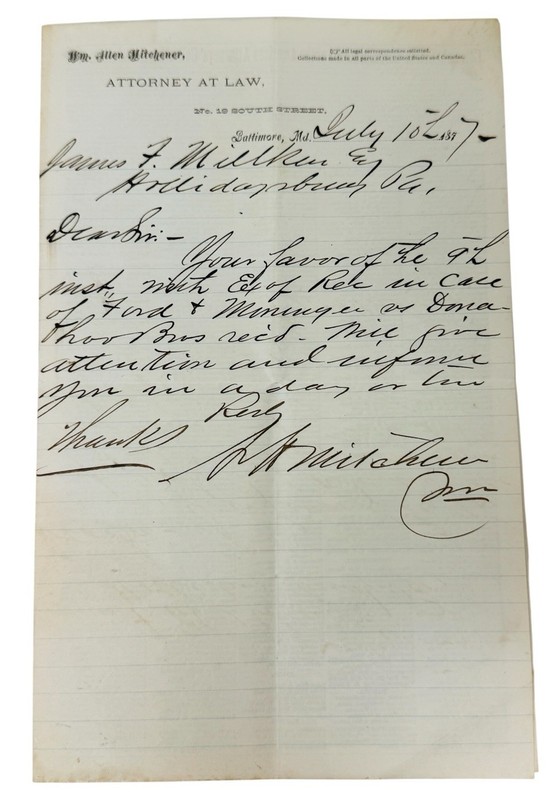 Wm. Allen Mitchener,
All legal correspondence solicited.
Collections made in all parts of the United States and Canadas.
ATTORNEY AT LAW,
No. 18 SOUTH STREET,
Baltimore, Md. July 10th 1877-
James F. Milliken Esq
Hollidaysburg Pa,
Dear Sir:-
Your favor of the 9th
inst, with Ex of Rec in case
of Ford & vs Dona-
Bros rec'd. Will give
attention and inform
you in a day or two
Resy
Thanks
Mitchener